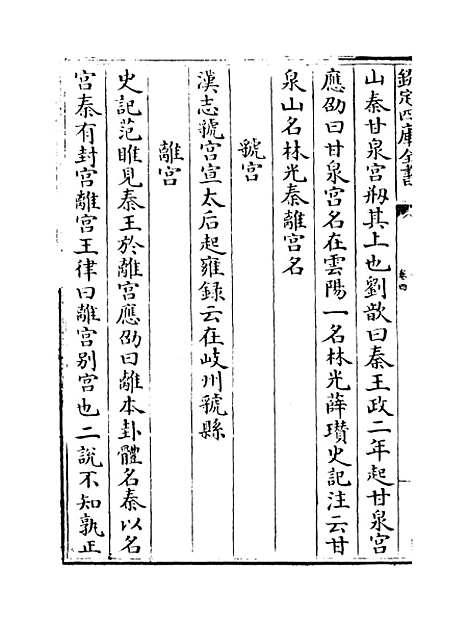 欽定四庫全書
卷四
山秦甘泉宫柳其上也劉歆曰秦王政二年起甘泉宫
應劭曰甘泉宫名在雲陽一名林光薛瓚史記注云甘
泉山名林光秦離宫名
虢宫
漢志虢宫宣太后起雍錄云在岐州虢縣
離宫
史記范睢見秦王於離宫應劭曰離本卦體名秦以名
宫秦有封宫離宫王律曰離宫别宫也二説不知孰正